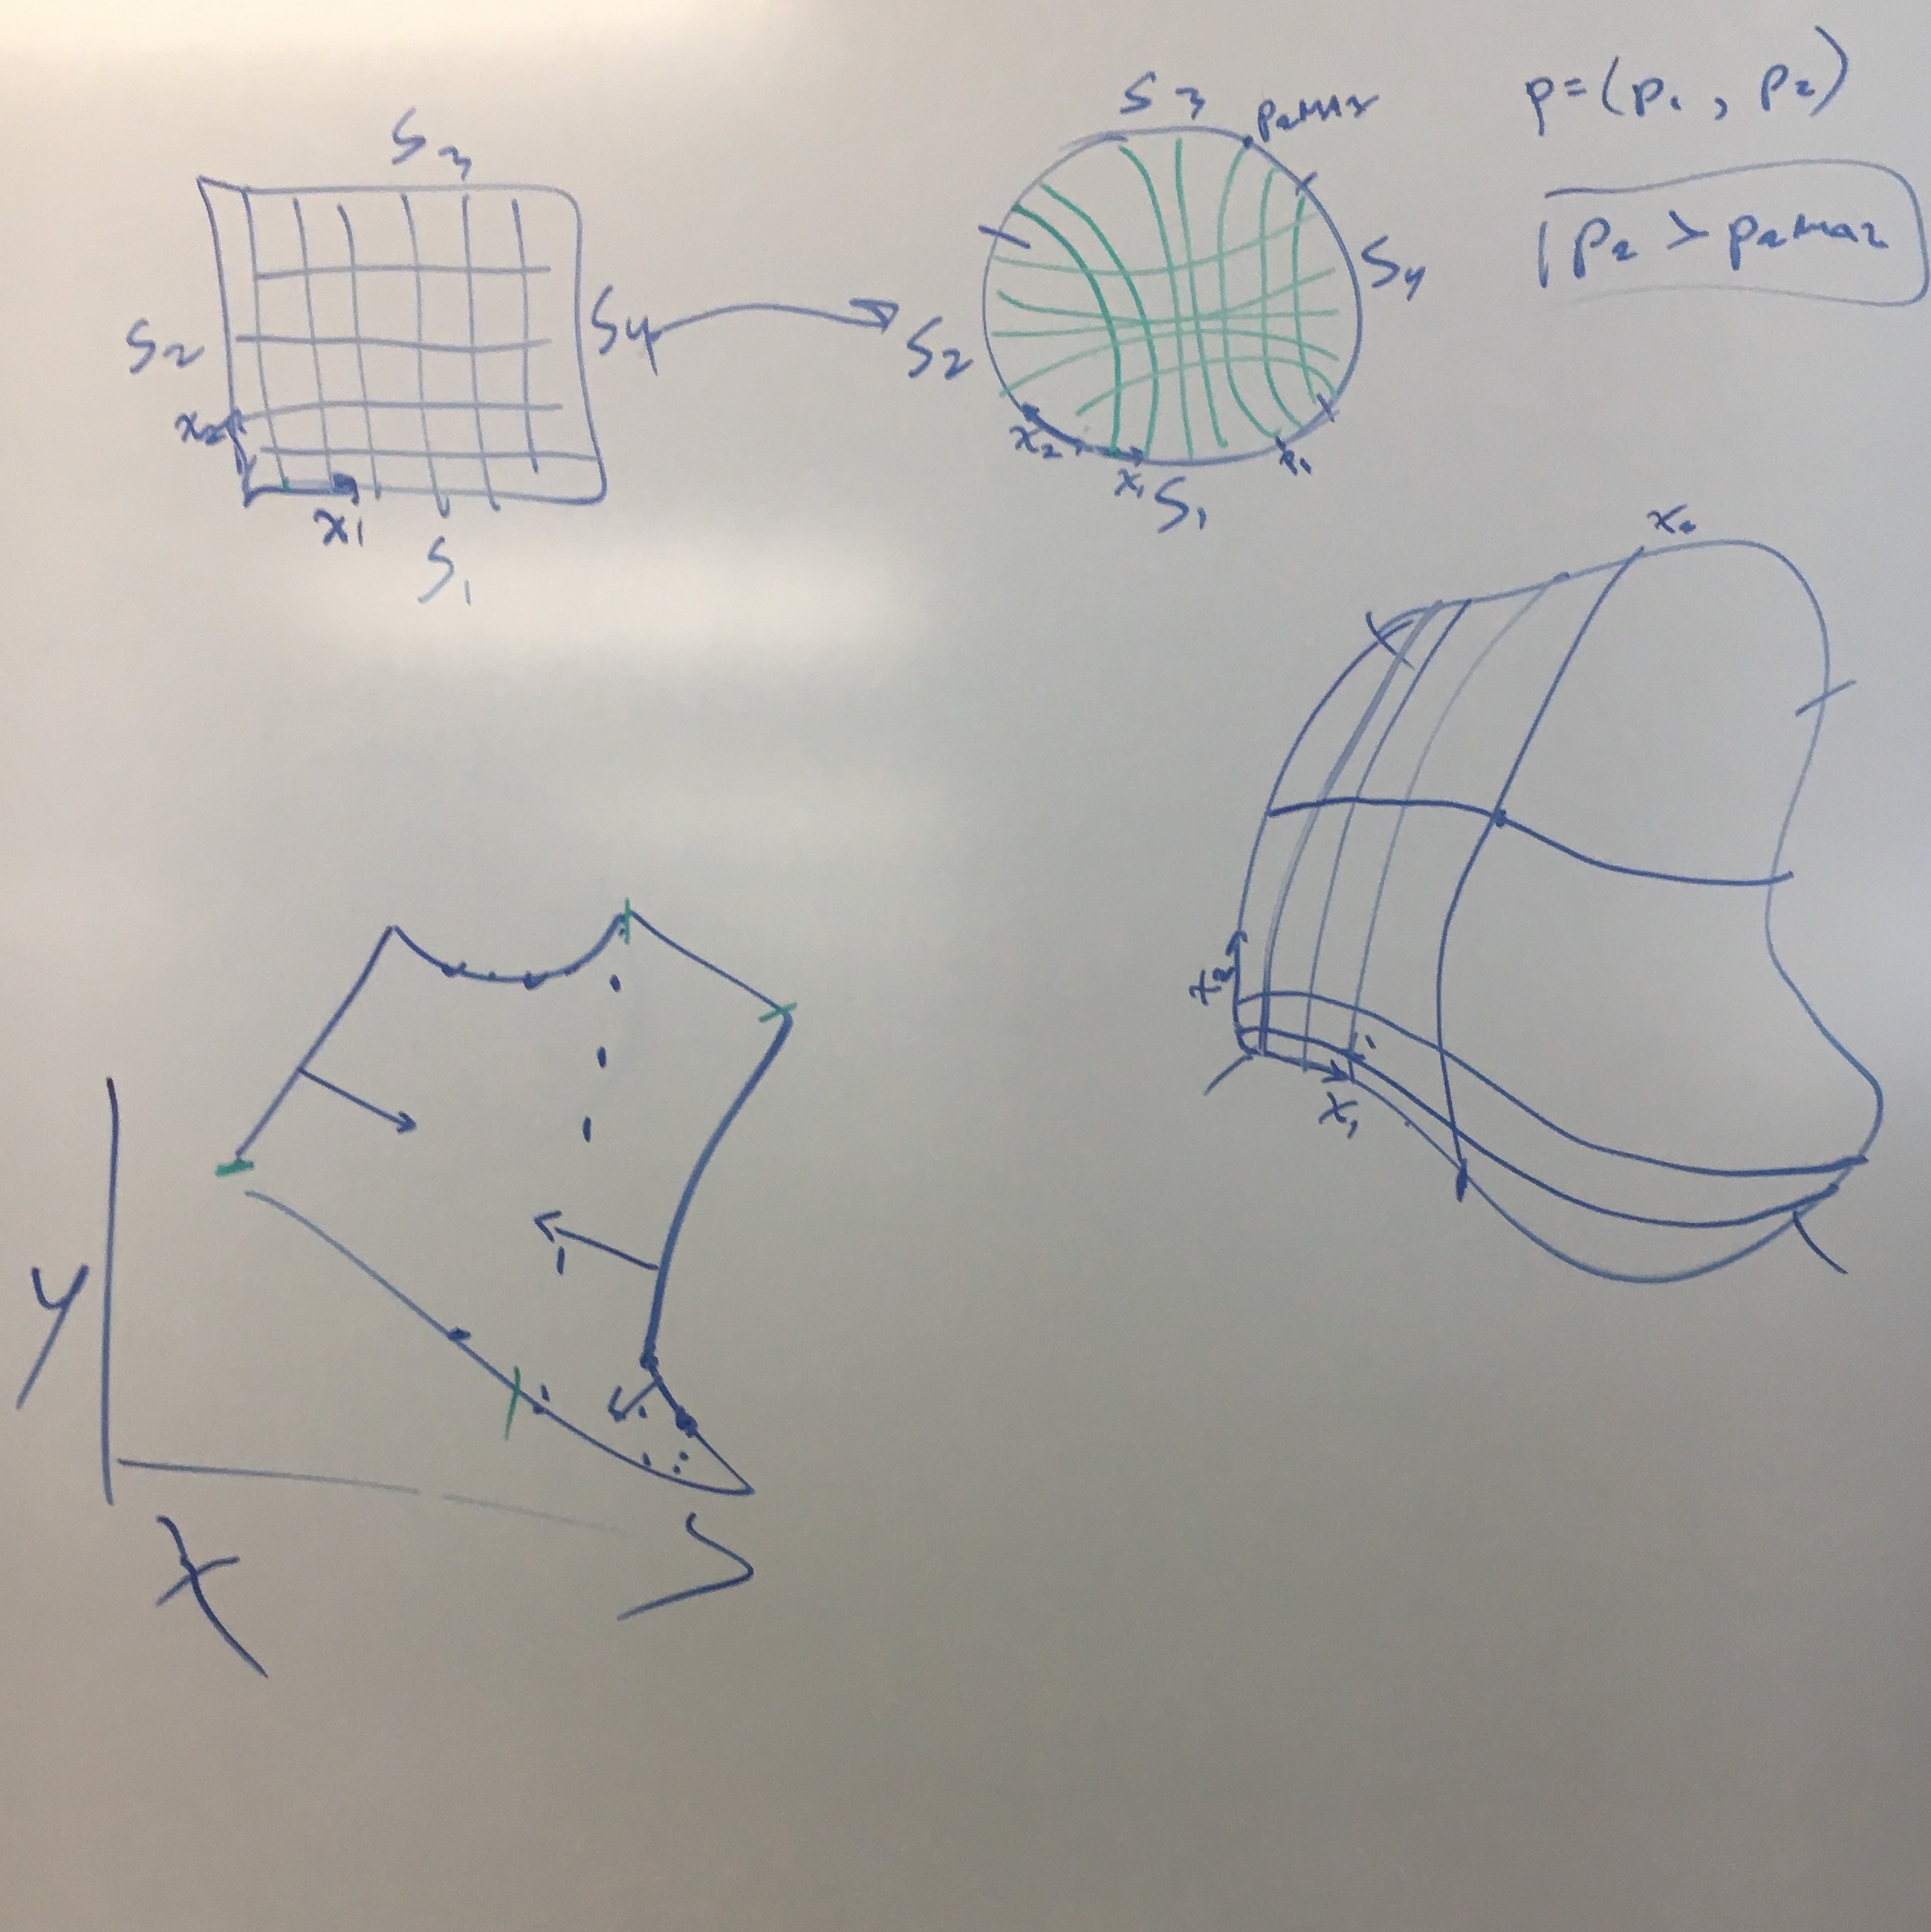 S3
S2
S4
x2
x1
S1
S3
P2MAX
S2
S4
x2
x1
S1
P1
p=(p1, p2)
P2 > P2MAX
x2
x2
x1
y
x